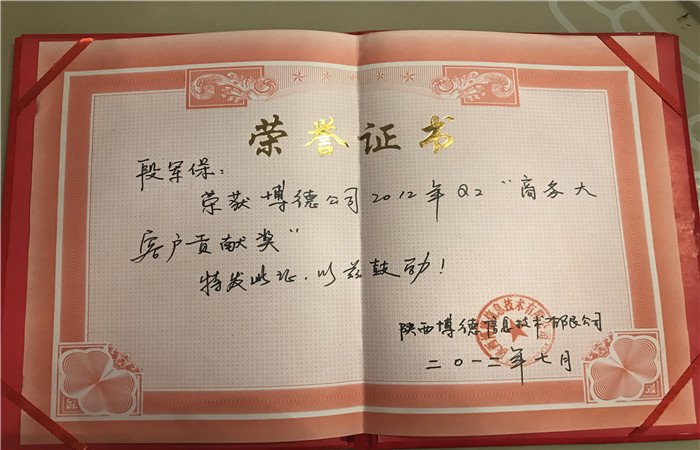 荣誉证书
段军保：
荣获博德公司2012年Q2“商务大
客户贡献奖”
特发此证，以兹鼓励！
陕西博德信息技术有限公司
二〇一二年七月